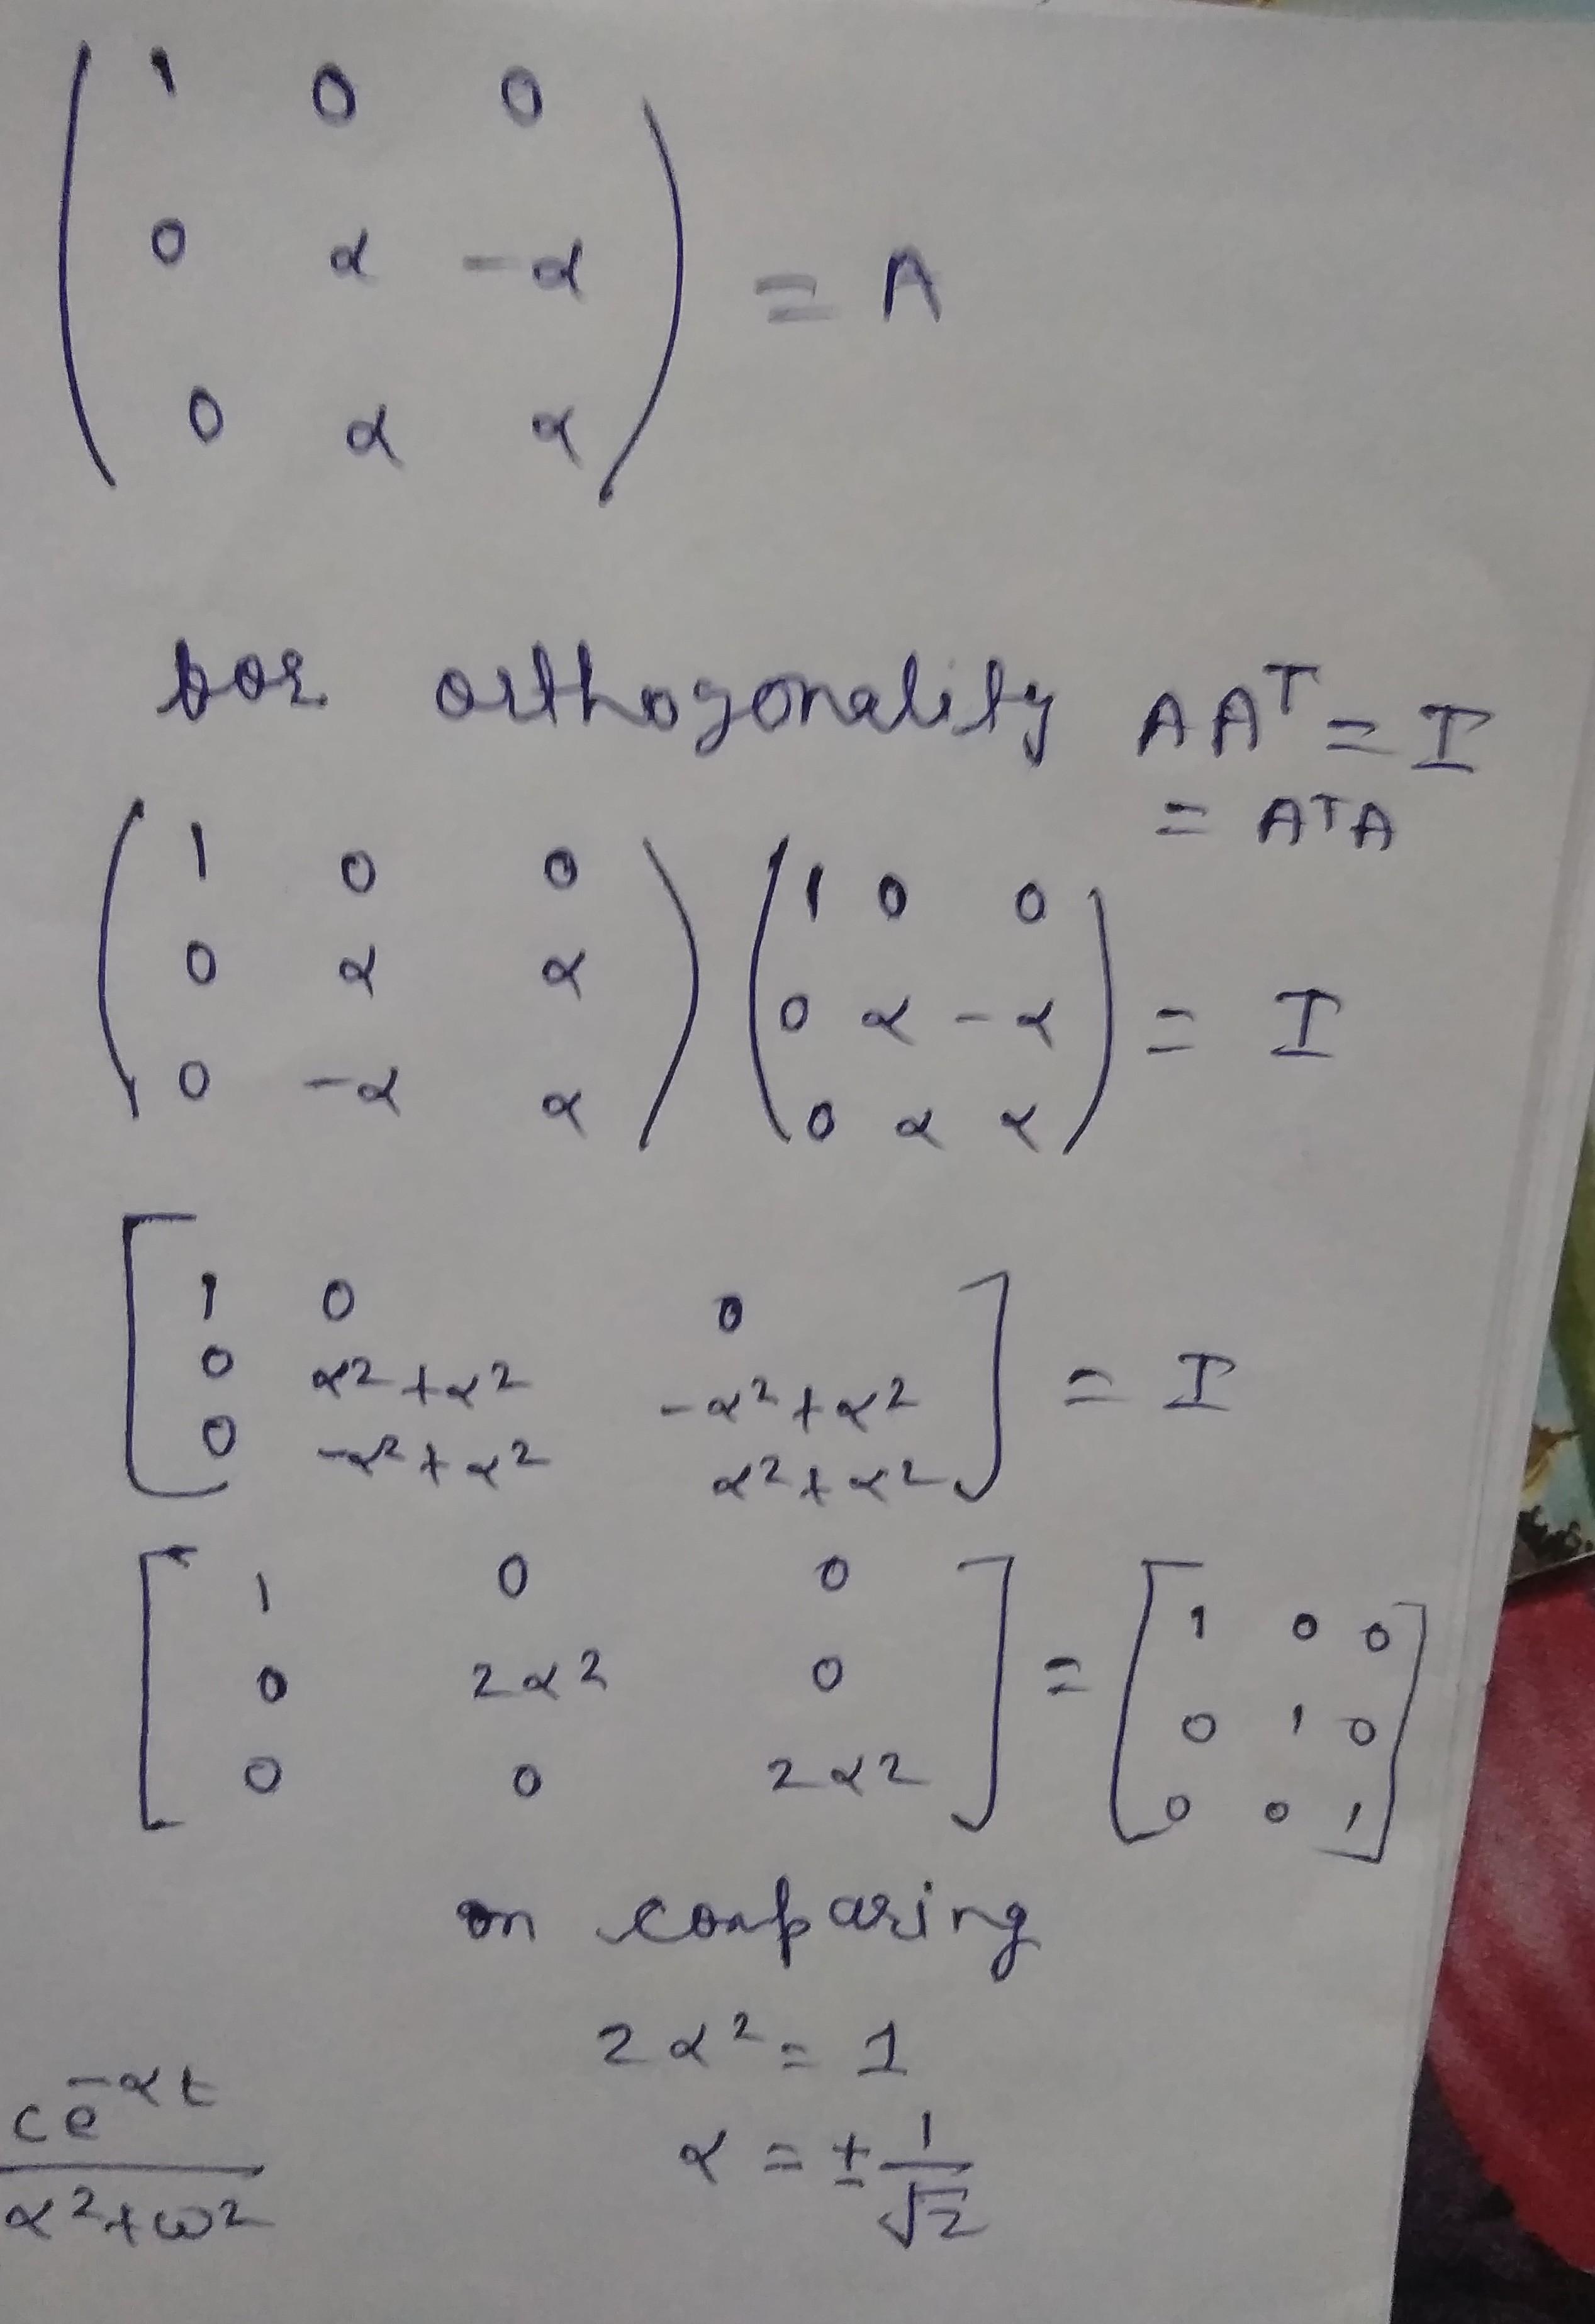 1 0 0
0 α -α = A
0 α α
for orthogonality AAᵀ = I
= AᵀA
1 0 0 1 0 0
0 α α 0 α -α = I
0 -α α 0 α α
1 0 0
0 α²+α² -α²+α² = I
0 -α²+α² α²+α²
1 0 0 1 0 0
0 2α² 0 = 0 1 0
0 0 2α² 0 0 1
on comparing
2α² = 1
α = ± 1/√2
ce^-αt
α²+ω²